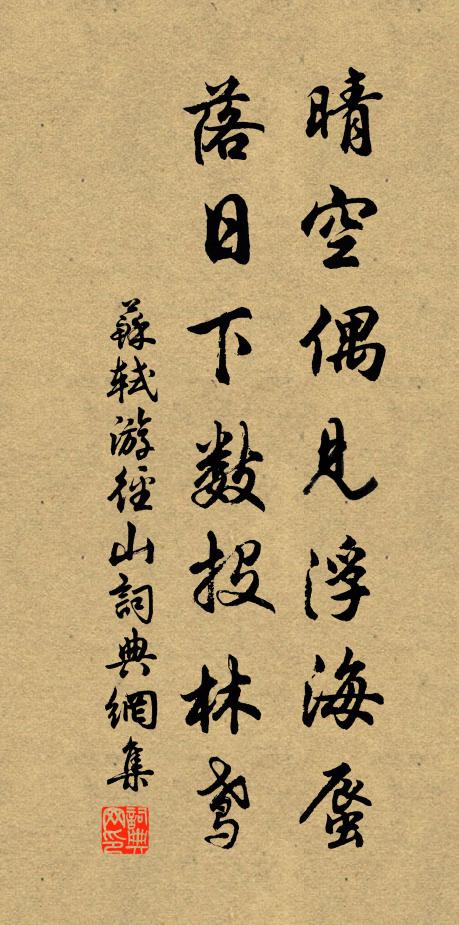 晴空偶見浮海蜃
落日下數投林鳶
蘇軾游徑山詞典網集
詞典網印